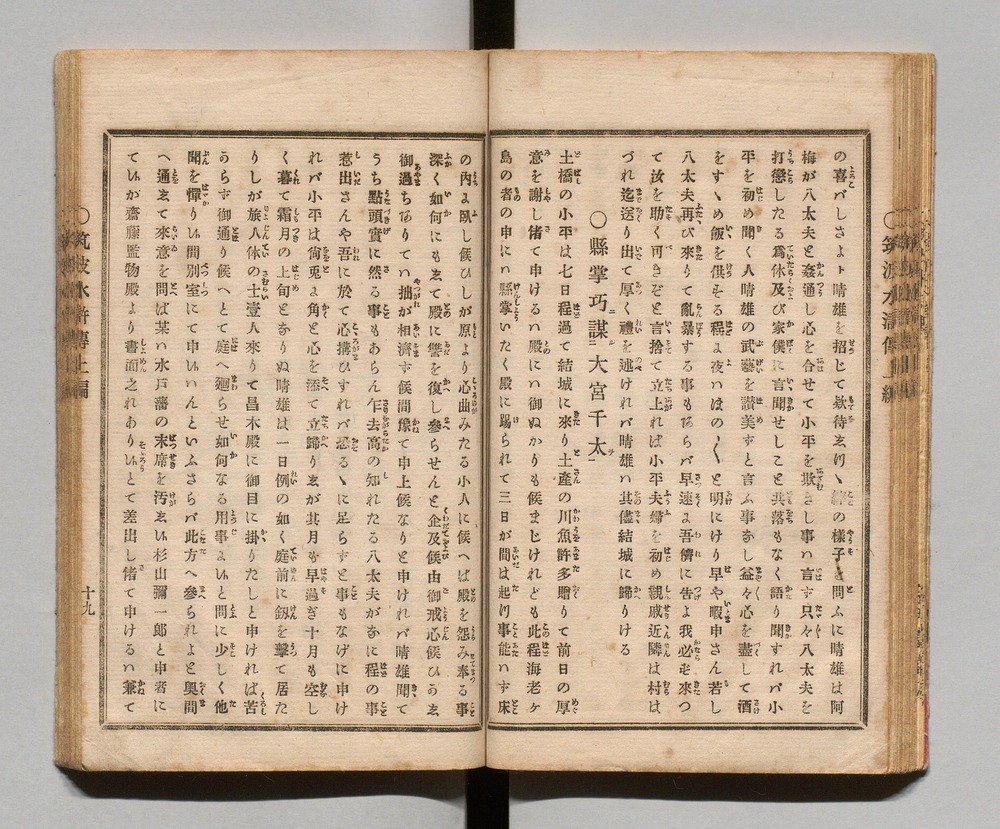 の喜バしさよト晴雄を招じて欵待ゑけり扨の様子を問ふに晴雄は阿
梅が八太夫と姦通し心を合せて小平を欺きし事ハ言す只々八太夫を
打懲したる爲休及び家僕に言聞せしこと共落もなく語り聞すれバ小
平を初め聞く人晴雄の武藝を讃美すと言ふ事なし益々心を盡して酒
をすゝめ飯を供そる程よ夜ハほの〲と明にけり早や暇申さん若し
八太夫再び來りて亂暴する事もあらバ早速よ吾儕に告よ我必ぞ來つ
て汝を助く可きぞと言捨て立上れば小平夫婦を初め親戚近隣は村は
づれ迄送り出て厚く禮を述けれバ晴雄ハ其儘結城に歸りける
〇縣掌巧謀ニ大宮千太一
土橋の小平は七日程過て結城に來り土産の川魚許多贈りて前日の厚
意を謝し偖て申けるハ殿にハ御ぬかりも候まじけれども此程海老ヶ
島の者の申にハ縣掌いたく殿に踢られて三日が間は起け事能ハず床
の内よ臥し候ひしが原より心曲みたる小人に候へば殿を怨み奉る事
深く如何にもゑて殿に讐を復し參らせんと企及候由御戒心候ひうゑ
御過ちありてハ拙が相濟す候間豫て申上候なりと申けれバ晴雄聞て
うち點頭實に然る事もあらん乍去高の知れたる八太夫が奈に程の事
惹出さんや吾に於て心搆ひすれバ恐るゝに足らずと事もなげに申け
れバ小平は尙兎よ角と心を添て立歸りゑが其月も早過ぎ十月も空し
く暮て霜月の上旬とありぬ晴雄は一日例の如く庭前に釼を擊て居た
りしが旅人体の士壹人來りて昌木殿に御目に掛りたしと申ければ苦
うらず御通り候へとて庭へ廻らせ如何なる用事よいと問に少しく他
聞を憚りい間別室にて申いんといふさらバ此方へ參られよと奥間
へ通ゑて來意を問ば某ハ水戸藩の末席を汚ゑい杉山彌一郎と申者に
ていが齋藤監物殿より書面之れありいとて差出し偖て申けるハ兼て
〇筑波水滸傳上編
十九